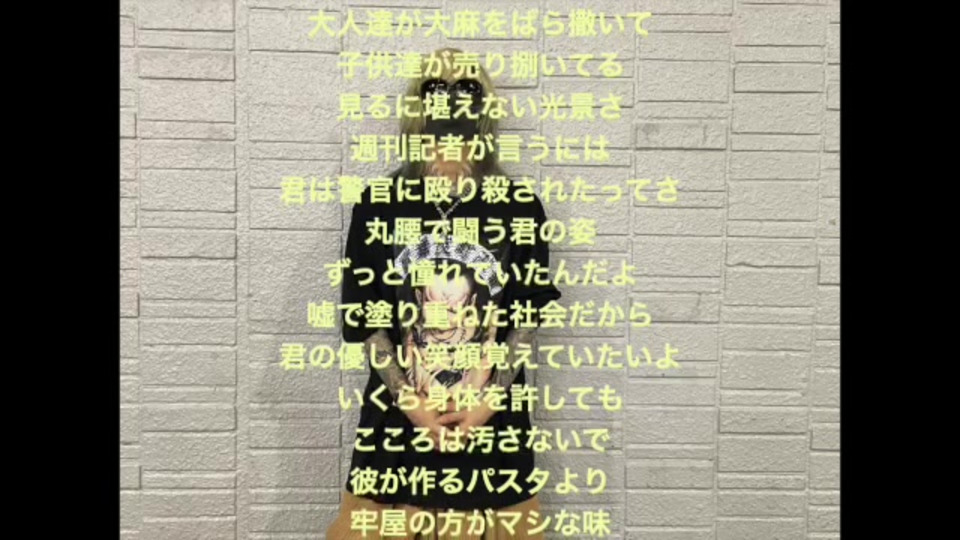 大人達が大麻をばら撒いて
子供達が売り捌いてる
見るに堪えない光景さ
週刊記者が言うには
君は警官に殴り殺されたってさ
丸腰で闘う君の姿
ずっと憧れていたんだよ
嘘で塗り重ねた社会だから
君の優しい笑顔覚えていたいよ
いくら身体を許しても
こころは汚さないで
彼が作るパスタより
牢屋の方がマシな味